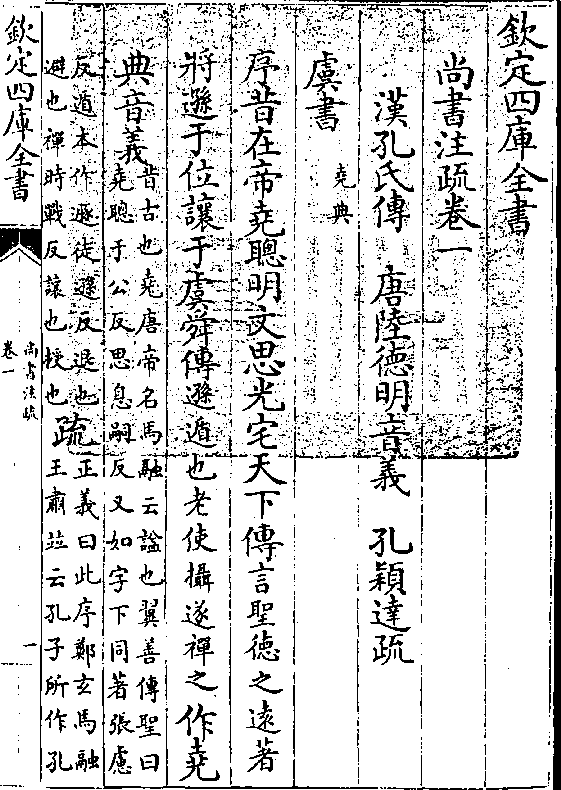 欽定四庫全書
尚書注疏卷一
漢孔氏傳　唐陸德明音義　孔穎達疏
虞書
堯典
序昔在帝堯聰明文思光宅天下傳言聖德之遠著
將遜于位讓于虞舜傳遜遁也老使攝遂禪之作堯
典音義昔古也堯唐帝名馬融云諡也翼善傳聖曰
堯聰于公反思息嗣反又如字下同著張慮
反遁本作遯徒遜反退也
避也禪時戰反讓也授也疏正義曰此序鄭玄馬融
王肅並云孔子所作孔
欽定四庫全書
尚書注疏
卷一
一